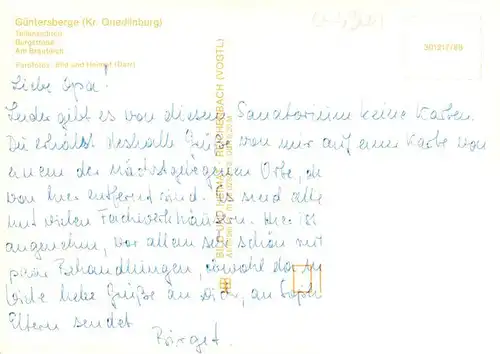 Güntersberge (Kr. Quedlinburg)
Teilansichten
Burgstraße
Am Brauteich
Farbfotos: Bild und Heimat (Darr)
301217/89
BILD UND HEIMAT REICHENBACH (VOGTL)
Liebe Opa!
Leider gibt es von diesem Sanatorium keine Karten.
Du erhälst deshalb Grüße von mir auf einer Karte von
einem der nächstgelegenen Orte, die
von hier entfernt sind. Es sind alle
mit vielen Fachwerkhäusern. Hier ist
angenehm, vor allem sehr schön mit
Behandlungen, obwohl
Viele liebe Grüße an Dich, an
Eltern sendet
Birget.